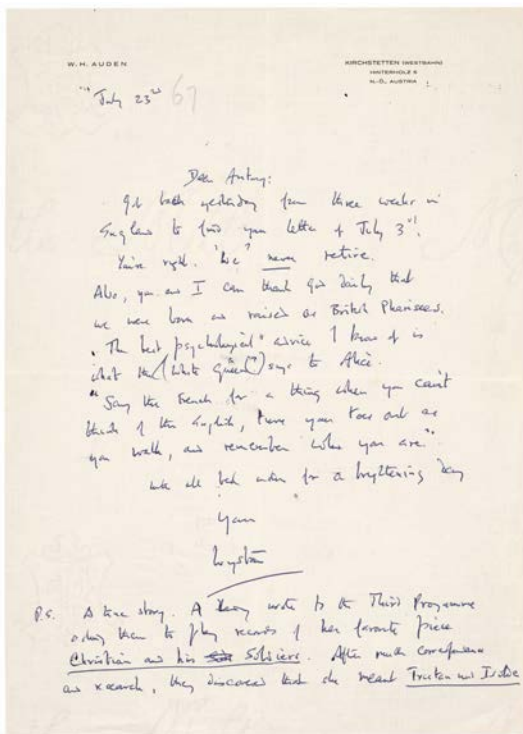 W. H. AUDEN
KIRCHSTETTEN (WESTBAHN)
HINTERHOLZ 6
N.-Ö., AUSTRIA
July 23rd 67
Dear Antony:
Got back yesterday from three weeks in
England to find your letter of July 3rd.
You're right. "We" never retire.
Also, you and I can thank God daily that
we were born and raised as British Pharisees.
The best "psychological" advice I know of is
what the (White Queen?) says to Alice.
"Say the French for a thing when you can't
think of the English, turn your toes out as
you walk, and remember who you are".
with all best wishes for a day
Yours
Wystan
P.S. A true story. A lady wrote to the Third Programme
asking them to play records of her favorite piece
Christian and his Soldiers. After much correspondence
and research, they discovered that she meant Tristan und Isolde